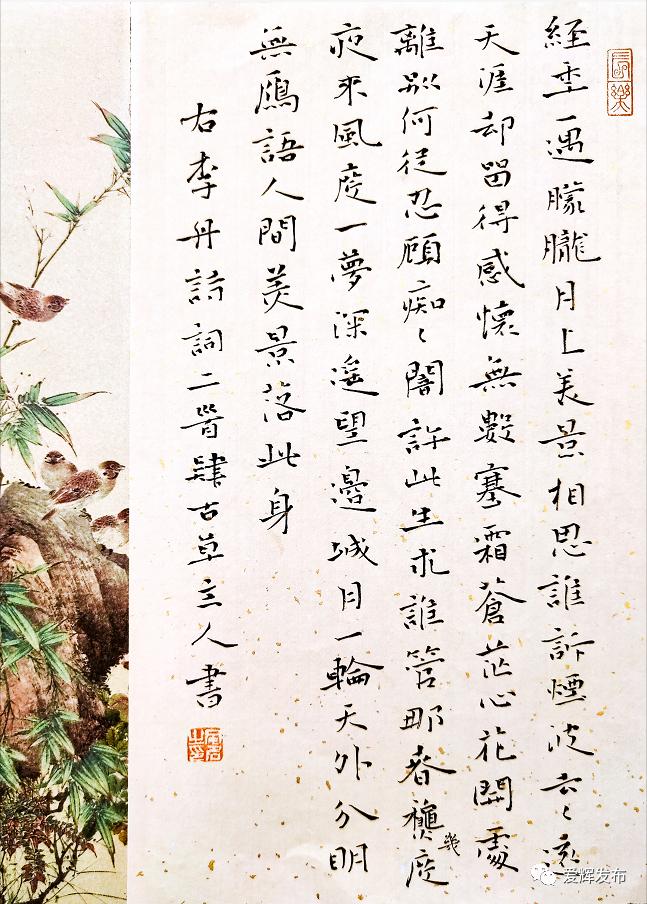 長樂
經年一遇朦朧月上美景相思誰訴煙波去〻遠
天涯却留得感懷無數塞霜蒼茫心花開處
離別何從忍顧痴〻闇許此生求誰管那春穠度
幾
夜來風度一夢深遙望邊城月一輪天外分明
無鴈語人間美景落此身
右李丹詩詞二首肆古草主人書
爱辉发布